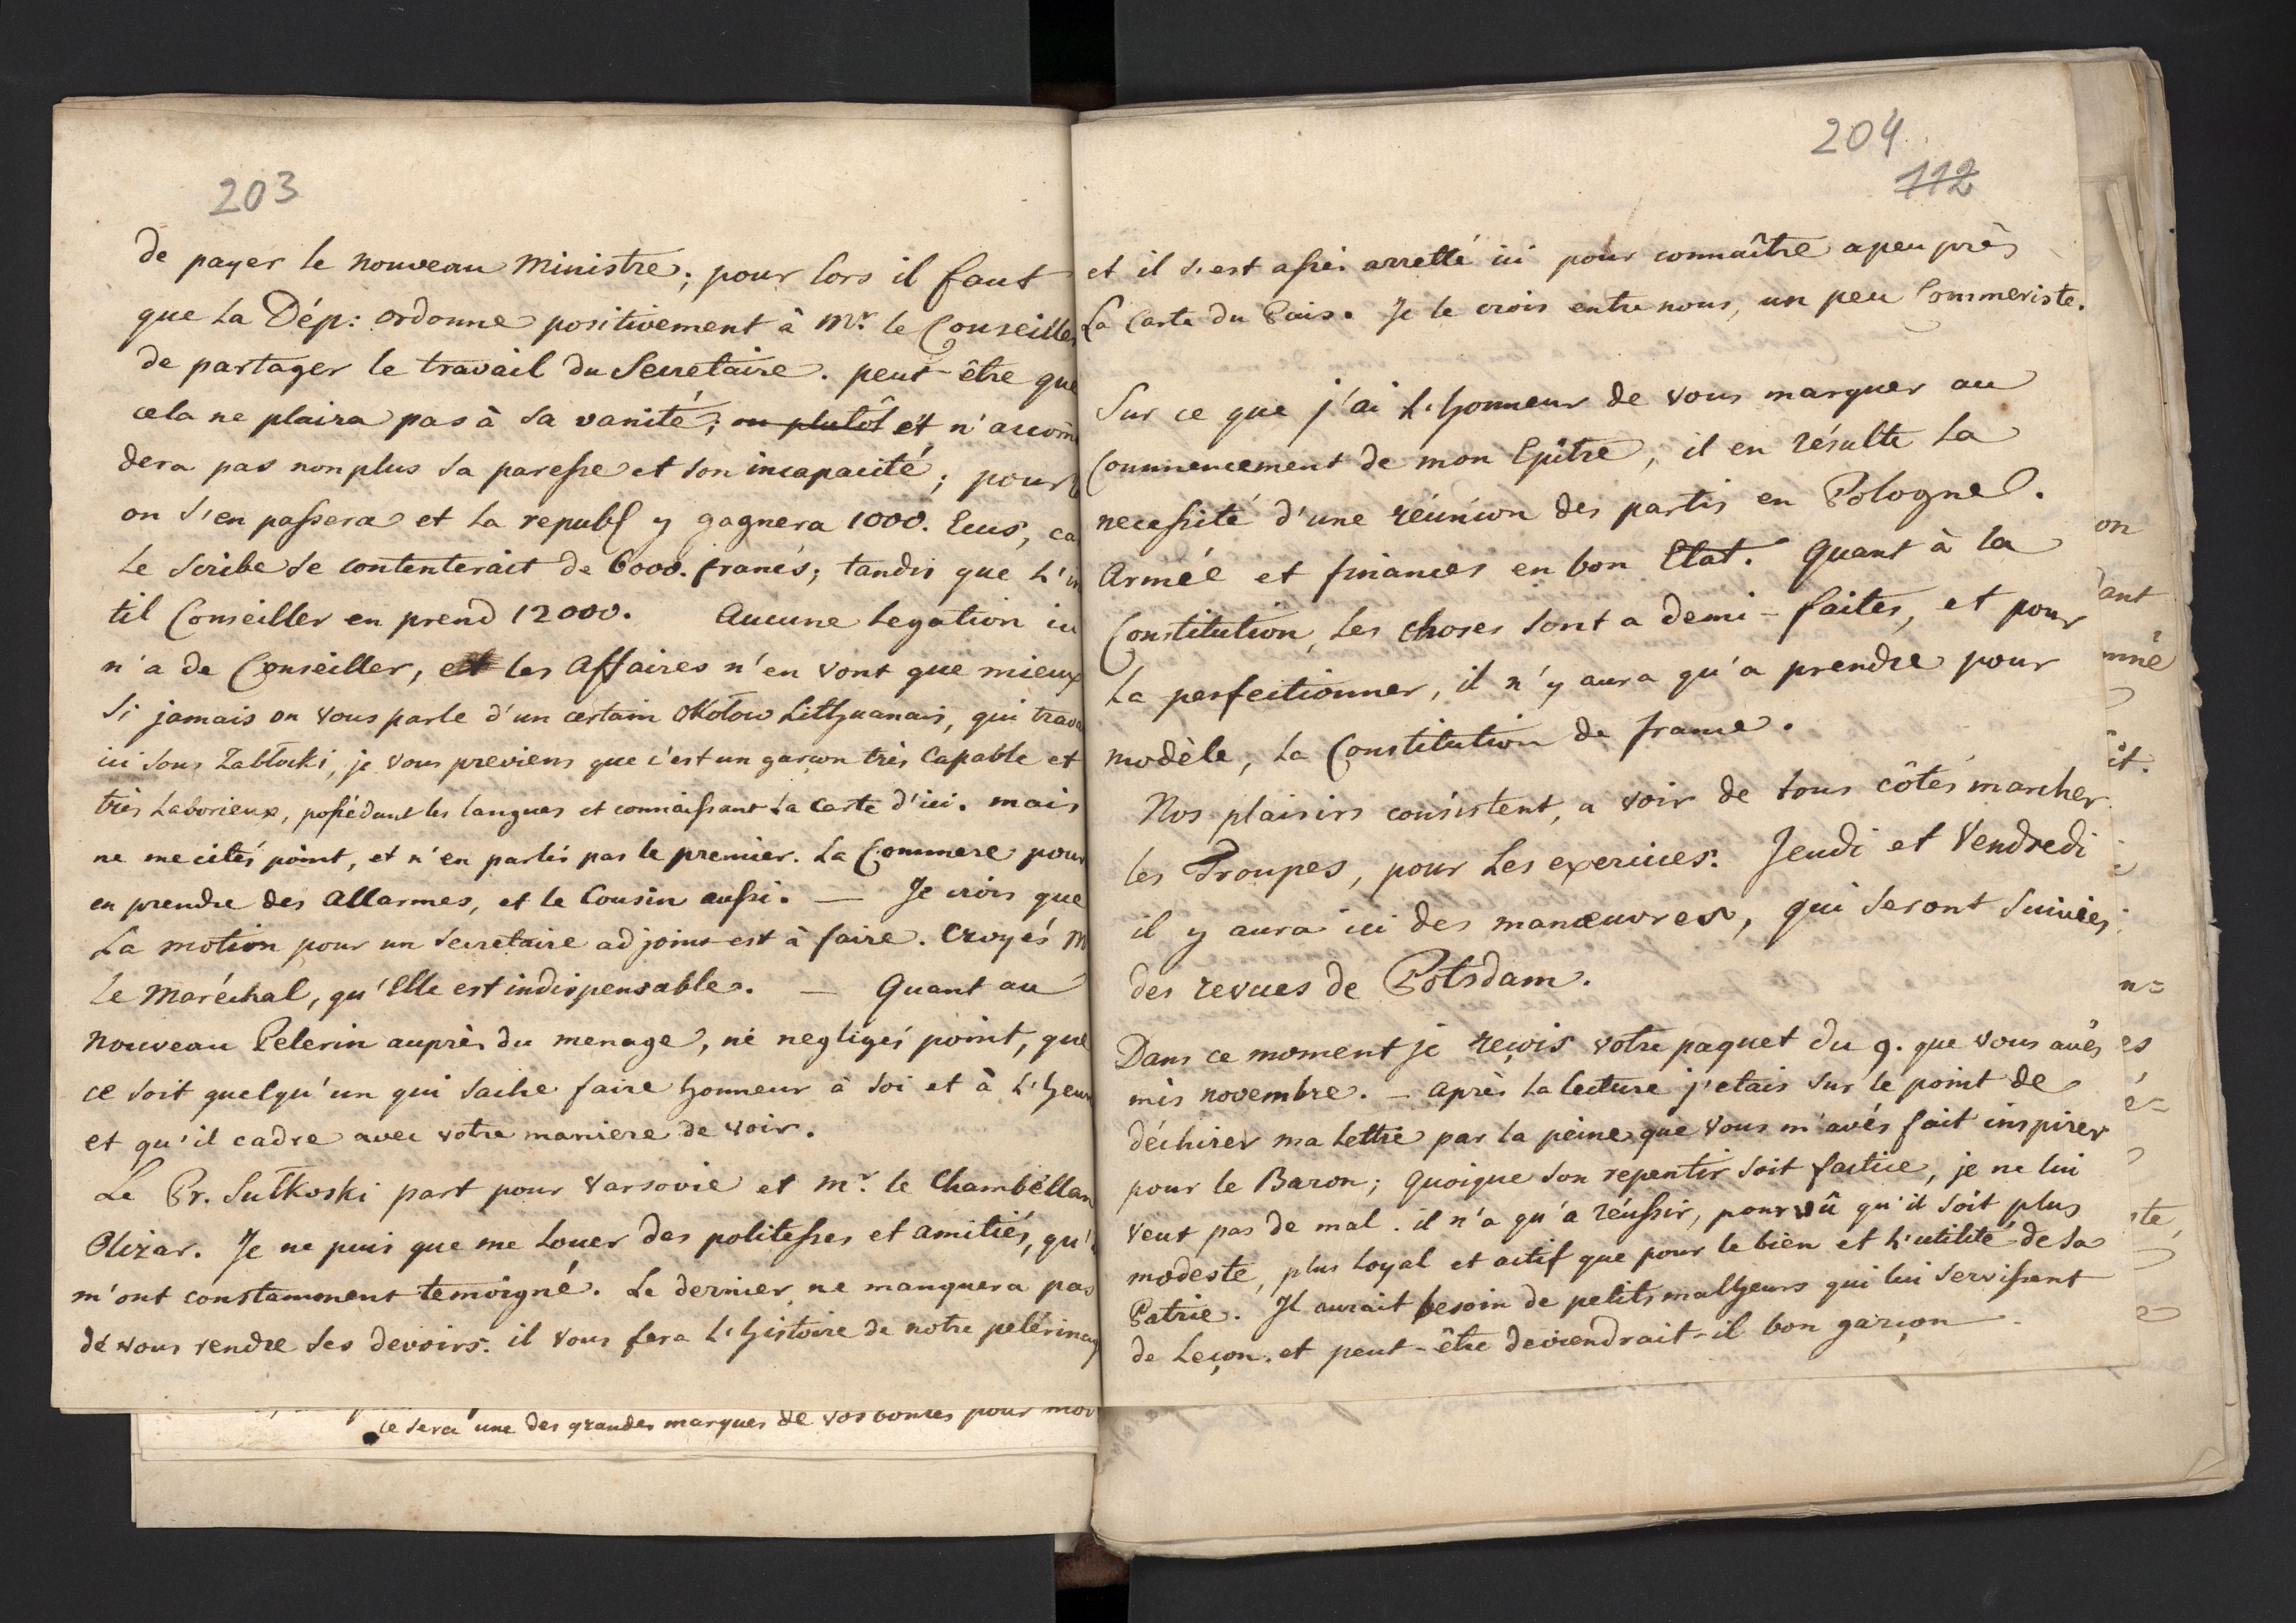 203
de payer le nouveau Ministre; pour lors il faut
que la Dép: ordonne positivement à Mr. le Conseiller
de partager le travail du Secretaire. peut-être que
cela ne plaira pas à sa vanité; ou plutôt et n'accom̄
dera pas nonplus sa paresse et son incapacité; pour
on s'en passera et la republ y gagnera 1000. Ecus, ca
le scribe se contenterait de 6000. francs; tandis que l'in
til Conseiller en prend 12000. Aucune legation ici
n'a de Conseiller, et les Affaires n'en vont que mieux
Si jamais on vous parle d'un certain Okołow Lithuanais, qui trava
ici sous Zabłocki, je vous previens que c'est un garçon très capable et
très laborieux, possédant les langues et connaissant la carte d'ici. mais
ne me cités point, et n'en parlés pas le premier. La Commere pour
en prendre des allarmes, et le Cousin aussi. — Je crois que
la motion pour un secretaire adjoint est à faire. Croyés M
le Maréchal, qu'Elle est indispensable. — Quant au
nouveau Pelerin auprès du menage, ne negligés point, que
ce soit quelqu'un qui sache faire honneur à soi et à l'heur
et qu'il cadre avec votre maniere de voir.
Le Pr. Sułkoski part pour Varsovie et Mr. le Chambellan
Olizar. Je ne puis que me louer des politesses et amitiés, qu'i
m'ont constamment temoigné. Le dernier ne manquera pas
de vous rendre ses devoirs. il vous fera l'histoire de notre pelérinag
ce sera une des grandes marques de vos bontés pour moi
204
112
et il s'est assés arretté ici pour connaître apeuprès
la carte du Païs. Je le crois entre nous, un peu Commeriste.
Sur ce que j'ai l'honneur de vous marquer au
Commencement de mon Epître, il en résulte la
necessité d'une réunion des partis en Pologne.
Armée et finances en bon Etat. Quant à la
Constitution, les choses sont a demi-faites, et pour
la perfectionner, il n'y aura qu'a prendre pour
modèle, la Constitution de france.
Nos plaisirs consistent, a voir de tous côtés marcher
les Troupes, pour les exercices. Jeudi et Vendredi
il y aura ici des manœuvres, qui seront suivies
des revues de Potsdam.
Dans ce moment je reçois votre paquet du 9. que vous avés
mis novembre. – après la lecture j'etais sur le point de
déchirer ma lettre par la peine que vous m'avés fait inspirer
pour le Baron; quoique son repentir soit factice, je ne lui
veut pas de mal. il n'a qu'a réussir, pourvû qu'il soit plus
modeste, plus loyal et actif que pour le bien et l'utilité de sa
Patrie. Il aurait besoin de petits malheurs qui lui servissent
de Leçon. et peut-être deviendrait-il bon garçon
on
dant
it.
n=
es
é=
ste,